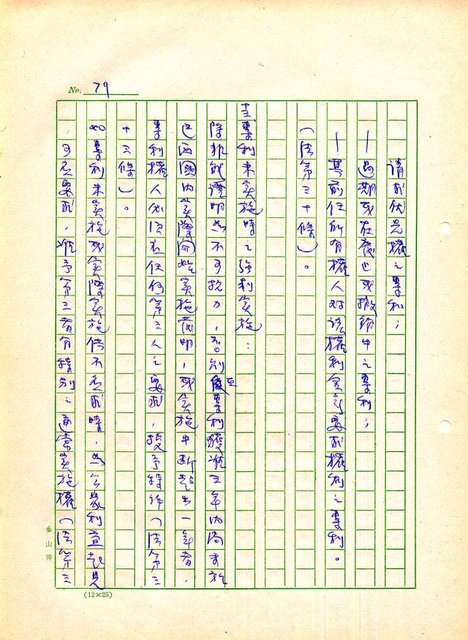 No. 79
請求優先權之專利；
—過期或在廢止或撤銷中之專利；
—其前任所有權人對該權利會主張要求權利之專利。
（法第三十條）。
專利未實施時之強制實施：
除非能證明為不可抗力，否則 專利獲准三年內尚未於
巴西國內實際開始實施發明，或實施中斷超出一年者，
專利權人必須應任何第三人之要求，授予特許（法第三
十三條）。
如專利未實施或實際實施供不應求時，為公眾利益起見
，可應要求，准予第三者有特別之適當實施權（法第三
金山牌
(12×25)